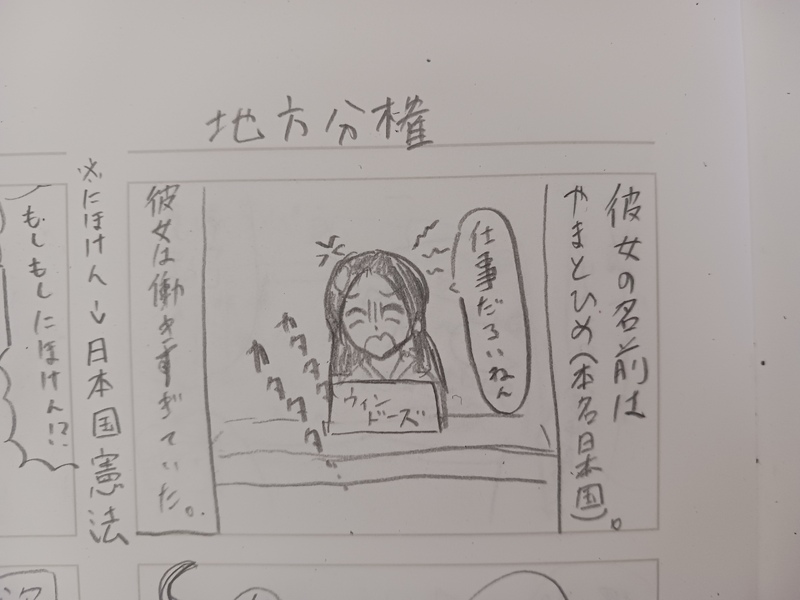 地方分権
彼女の名前は
やまとひめ(本名日本国)。
仕事だるいねん
カタカタ
カタタタタ
ウィン
ドーズ
彼女は働きすぎていた。
※にほけん→日本国憲法
もしもしにほけん!?